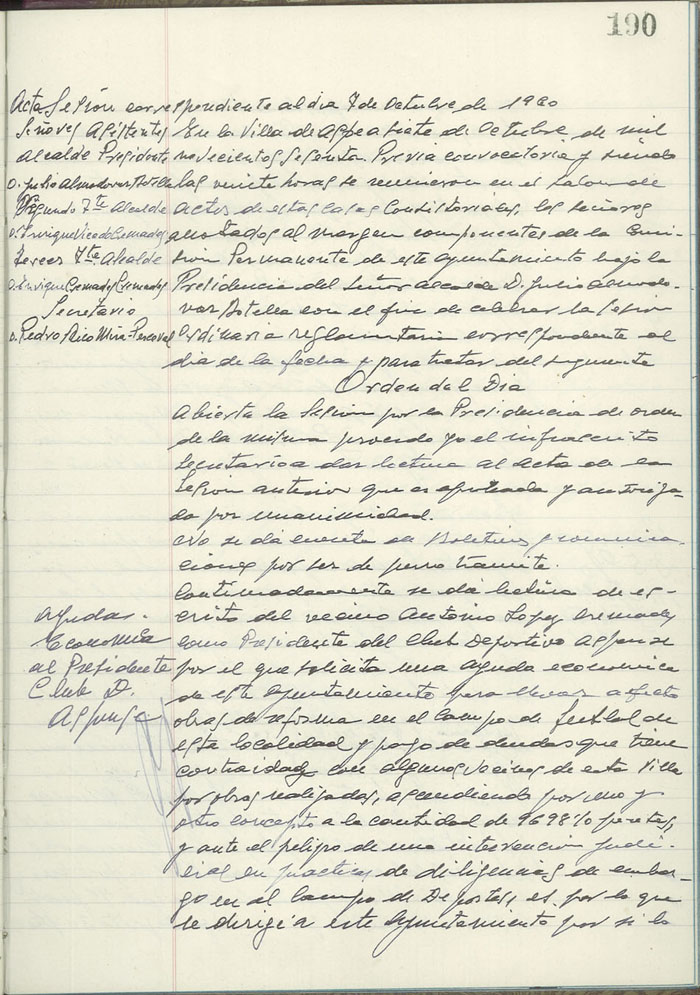 190
Acta Sesión correspondiente al dia 7 de Octubre de 1960
Señores Asistentes
Alcalde Presidente
D. Julio Almodovar Botella
Segundo Tte Alcalde
D. Enrique Vicedo Cremades
Tercer Tte Alcalde
D. Enrique Cremades Cremades
Secretario
D. Pedro Rico Mira-Perceval
En la Villa de Aspe a siete de Octubre de mil
novecientos sesenta. Previa convocatoria y siendo
las veinte horas se reunieron en el Salon de
actos de estas Casas Consistoriales, los señores
anotados al margen componentes de la Comi-
sión Permanente de este Ayuntamiento bajo la
Presidencia del Señor Alcalde D. Julio Almodo-
var Botella con el fin de celebrar la sesion
ordinaria reglamentaria correspondiente al
dia de la fecha y para tratar del siguiente
Orden del Dia
Abierta la Sesion por la Presidencia de orden
de la misma procedo yo el infrascrito
Secretario a dar lectura al Acta de la
Sesion anterior que es aprobada y autoriza-
da por unanimidad.
No se dá cuenta de Boletines y comunica-
ciones por ser de puro tramite.
Continuadamente se dá lectura de es-
crito del vecino Antonio Lopez Cremades
como Presidente del Club Deportivo Aspense
por el que solicita una ayuda economica
de este Ayuntamiento para llevar a efecto
obras de reforma en el Campo de futbol de
esta localidad y pago de deudas que tiene
contraidas con algunos vecinos de esta Villa
por obras realizadas, ascendiendo por uno y
otro concepto a la cantidad de pesetas,
y ante el peligro de una intervencion judi-
cial en practicas de diligencias de embar-
go en el Campo de Deportes, es por lo que
se dirige a este Ayuntamiento por si lo
Ayudas.
Economia
al Presidente
Club D.
Aspense